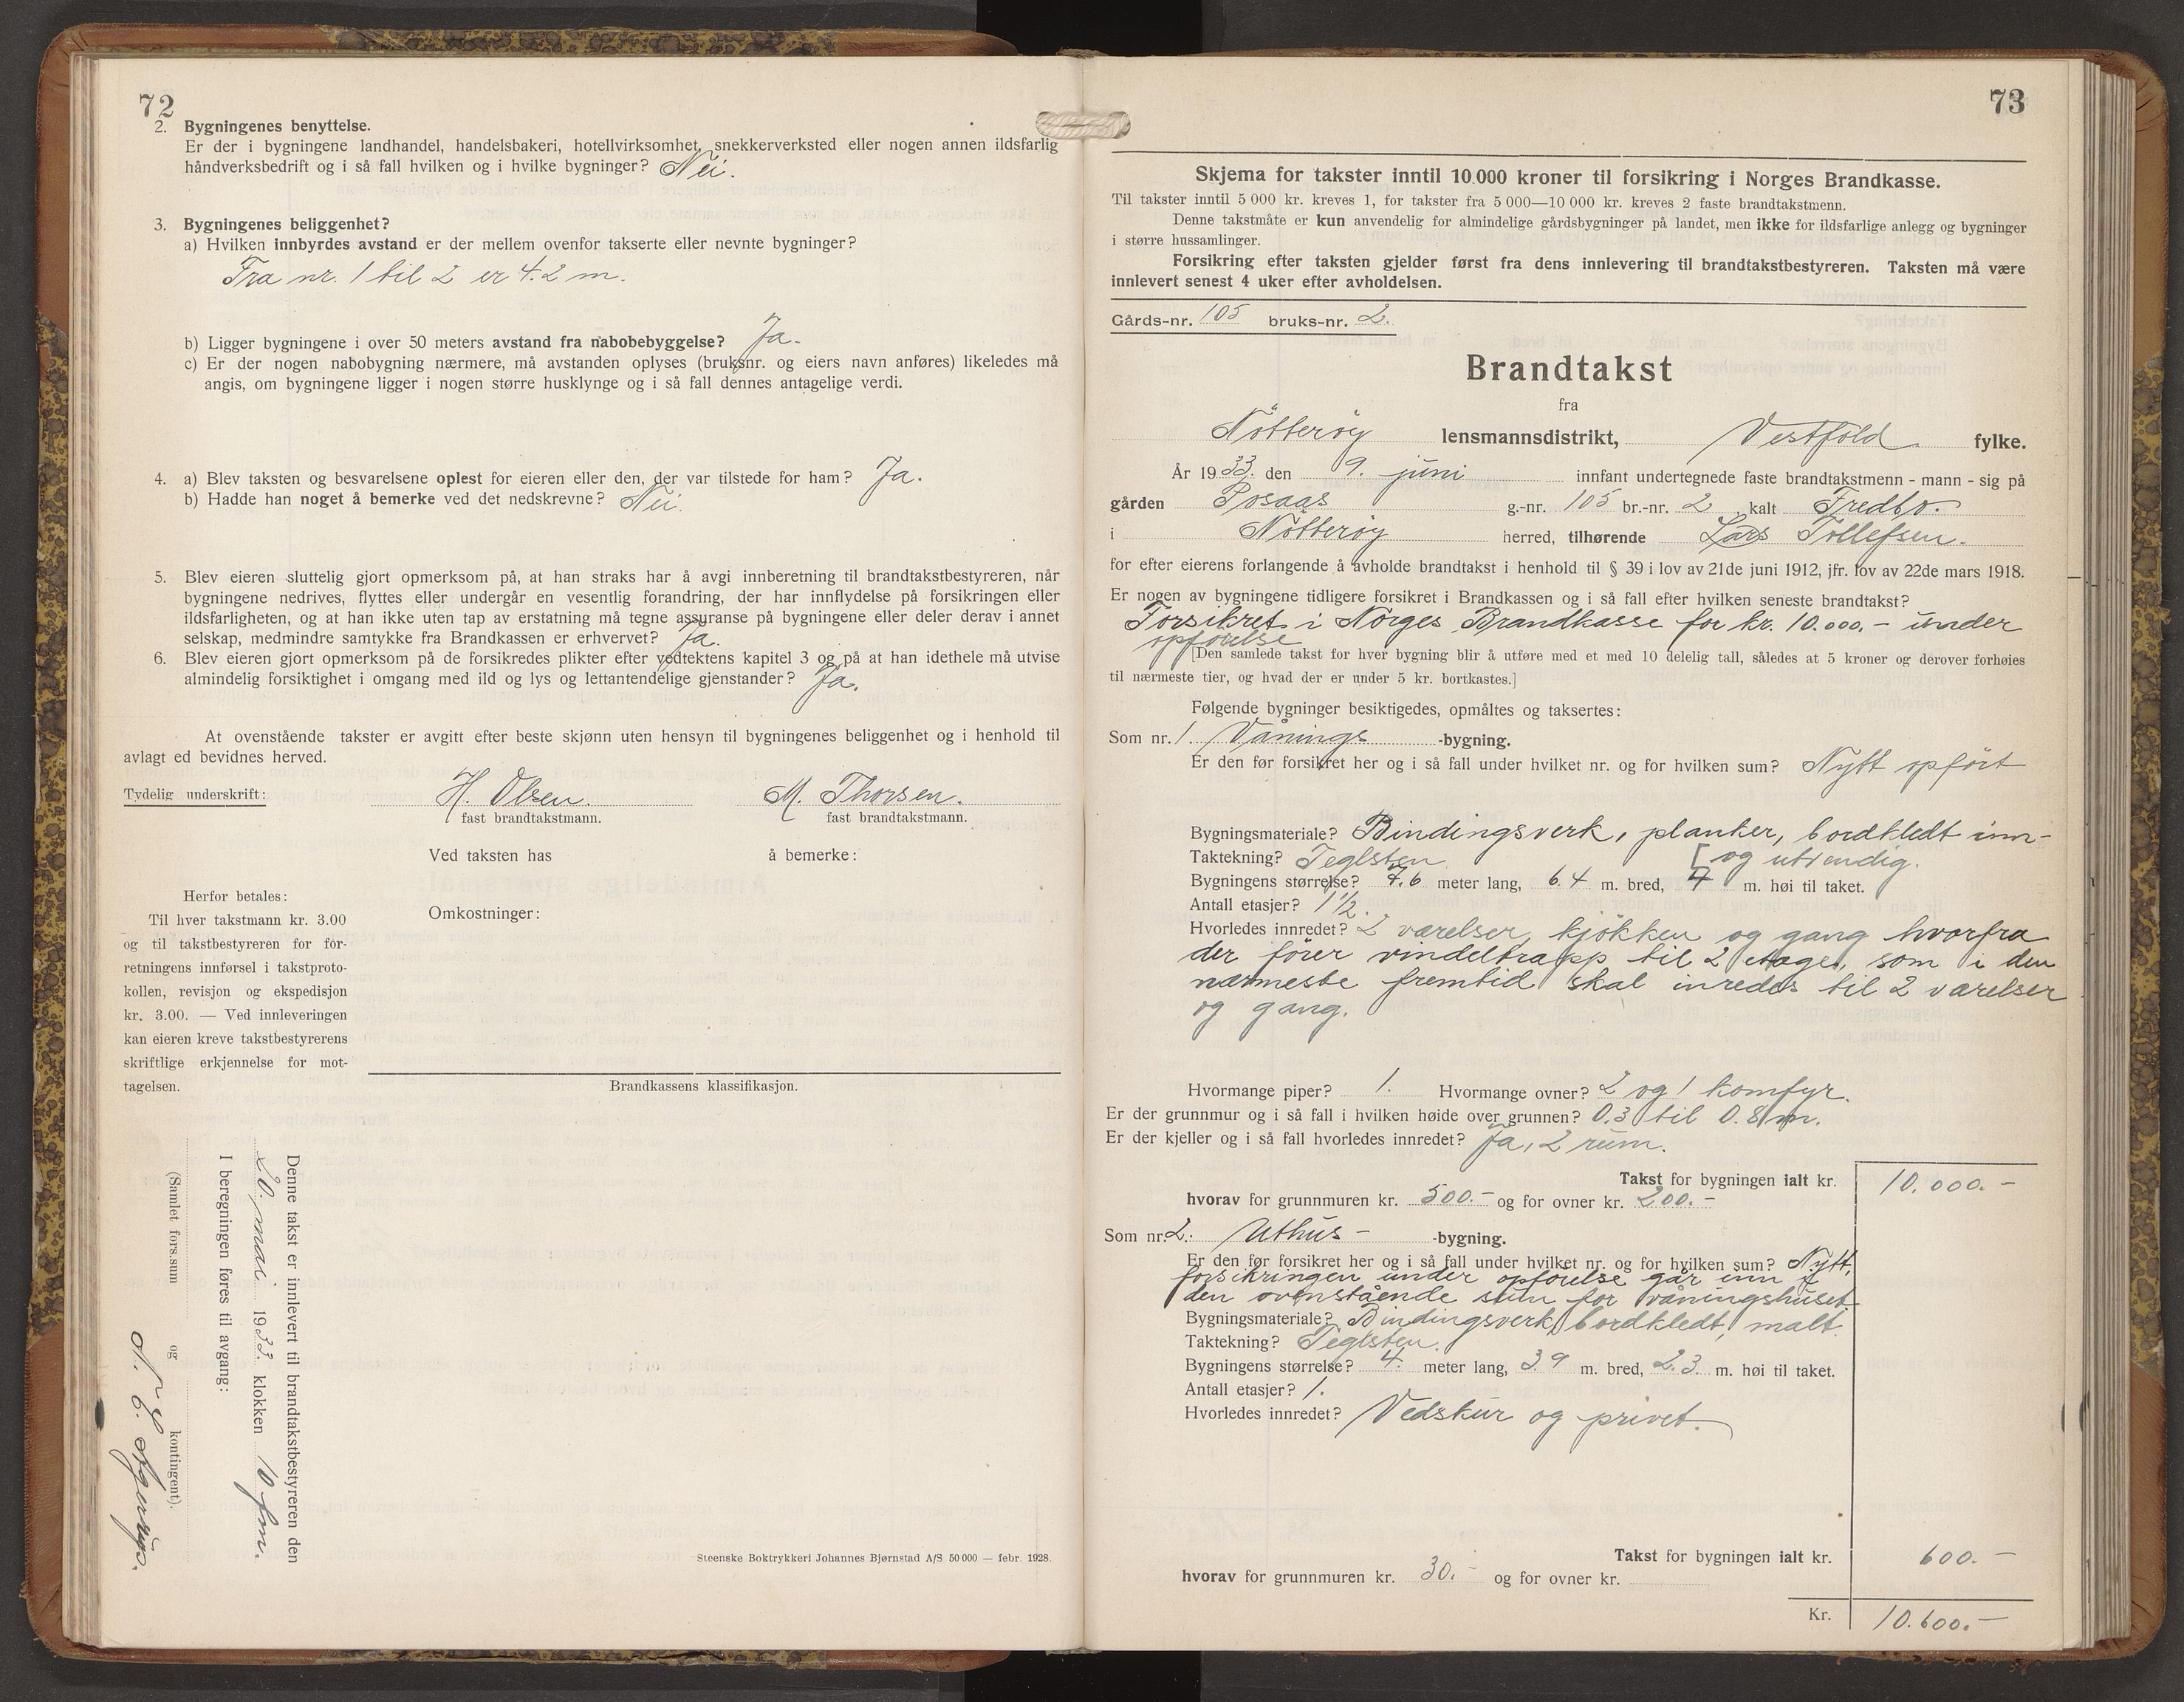 72
2. Bygningenes benyttelse.
Er der i bygningene landhandel, handelsbakeri, hotellvirksomhet, snekkerverksted eller nogen annen ildsfarlig
håndverksbedrift og i så fall hvilken og i hvilke bygninger? Nei.
3. Bygningenes beliggenhet?
a) Hvilken innbyrdes avstand er der mellem ovenfor takserte eller nevnte bygninger?
Fra nr. 1 til 2 er 4.2 m.
b) Ligger bygningene i over 50 meters avstand fra nabobebyggelse? Ja.
c) Er der nogen nabobygning nærmere, må avstanden oplyses (bruksnr. og eiers navn anføres) likeledes må
angis, om bygningene ligger i nogen større husklynge og i så fall dennes antagelige verdi.
4. a) Blev taksten og besvarelsene oplest for eieren eller den, der var tilstede for ham? Ja.
b) Hadde han noget å bemerke ved det nedskrevne? Nei.
5. Blev eieren sluttelig gjort opmerksom på, at han straks har å avgi innberetning til brandtakstbestyreren, når
bygningene nedrives, flyttes eller undergår en vesentlig forandring, der har innflydelse på forsikringen eller
ildsfarligheten, og at han ikke uten tap av erstatning må tegne assuranse på bygningene eller deler derav i annet
selskap, medmindre samtykke fra Brandkassen er erhvervet? Ja.
6. Blev eieren gjort opmerksom på de forsikredes plikter efter vedtektens kapitel 3 og på at han idethele må utvise
almindelig forsiktighet i omgang med ild og lys og lettantendelige gjenstander? Ja.
At ovenstående takster er avgitt efter beste skjønn uten hensyn til bygningenes beliggenhet og i henhold til
avlagt ed bevidnes herved.
Tydelig underskrift: H. Olsen. M. Thorsen.
fast brandtakstmann. fast brandtakstmann.
Ved taksten has å bemerke:
Herfor betales:
Til hver takstmann kr. 3.00
og til takstbestyreren for for-
retningens innførsel i takstproto-
kollen, revisjon og ekspedisjon
kr. 3.00. — Ved innleveringen
kan eieren kreve takstbestyrerens
skriftlige erkjennelse for mot-
tagelsen.
Omkostninger:
Brandkassens klassifikasjon.
Denne takst er innlevert til brandtakstbestyreren den
20. mai 1933. klokken 10 fm.
I beregningen føres til avgang:
(Samlet fors.sum og kontingent).
Steenske Boktrykkeri Johannes Bjørnstad A/S 50 000 — febr. 1928.
73
Skjema for takster inntil 10.000 kroner til forsikring i Norges Brandkasse.
Til takster inntil 5 000 kr. kreves 1, for takster fra 5 000—10 000 kr. kreves 2 faste brandtakstmenn.
Denne takstmåte er kun anvendelig for almindelige gårdsbygninger på landet, men ikke for ildsfarlige anlegg og bygninger
i større hussamlinger.
Forsikring efter taksten gjelder først fra dens innlevering til brandtakstbestyreren. Taksten må være
innlevert senest 4 uker efter avholdelsen.
Gårds-nr. 105 bruks-nr. 2.
Brandtakst
fra
Nötteröy lensmannsdistrikt, Vestfold fylke.
År 1933. den 9. juni innfant undertegnede faste brandtakstmenn - mann - sig på
gården Rosaas g.-nr. 105 br.-nr. 2 kalt Fredbo.
i Nötteröy herred, tilhørende Lars Tollefsen.
for efter eierens forlangende å avholde brandtakst i henhold til § 39 i lov av 21de juni 1912, jfr. lov av 22de mars 1918.
Er nogen av bygningene tidligere forsikret i Brandkassen og i så fall efter hvilken seneste brandtakst?
Forsikret i Norges Brandkasse for kr. 10.000.- under
opförelse
[Den samlede takst for hver bygning blir å utføre med et med 10 delelig tall, således at 5 kroner og derover forhøies
til nærmeste tier, og hvad der er under 5 kr. bortkastes.]
Følgende bygninger besiktigedes, opmåltes og taksertes:
Som nr. 1. Vånings -bygning.
Er den før forsikret her og i så fall under hvilket nr. og for hvilken sum? Nytt opfört
Bygningsmateriale? Bindingsverk, planker, bordkledt inn-
Taktekning? Teglsten [og utvendig.
Bygningens størrelse? 7.6 meter lang, 6.4 m. bred, 7 m. høi til taket.
Antall etasjer? 1 1/2.
Hvorledes innredet? 2 værelser, kjökken og gang hvorfra
der förer vindeltrapp til 2 etage, som i den
nærmeste fremtid skal inredes til 2 værelser
og gang.
Hvormange piper? 1. Hvormange ovner? 2 og 1 komfyr.
Er der grunnmur og i så fall i hvilken høide over grunnen? 0.3 til 0.8 m.
Er der kjeller og i så fall hvorledes innredet? Ja, 2 rum.
Takst for bygningen ialt kr. 10.000.-
hvorav for grunnmuren kr. 500.- og for ovner kr. 200.-
Som nr. 2. Uthus- -bygning.
Er den før forsikret her og i så fall under hvilket nr. og for hvilken sum? Nytt,
forsikringen under opförelse går inn i
den ovenstående sum for våningshuset.
Bygningsmateriale? Bindingsverk, bordkledt, malt.
Taktekning? Teglsten.
Bygningens størrelse? 4. meter lang, 3.9 m. bred, 2.3 m. høi til taket.
Antall etasjer? 1.
Hvorledes innredet? Vedskur og privet.
Takst for bygningen ialt kr. 600.-
hvorav for grunnmuren kr. 30.- og for ovner kr.
Kr. 10.600.-